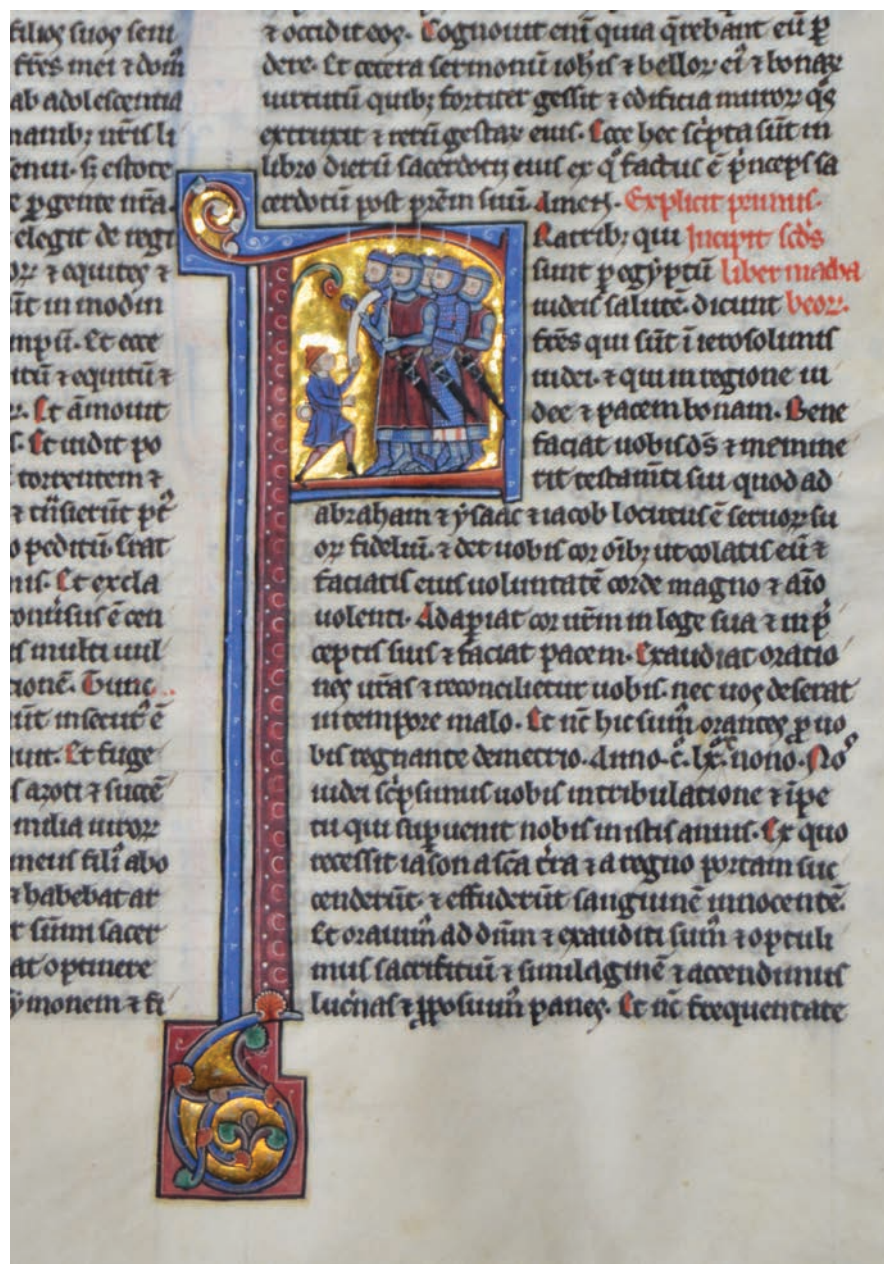 filios suos seni
frēs mei ⁊ dom̄
ab adolescentia
manib; nr̄is li
eniui. s; estote
⁊ p̱gente nr̄a.
elegit de regi
ūt in modin
mpū. Et ecce
itū ⁊ equitū ⁊
Et āmouit
Et uidit po
torrentem ⁊
⁊ t̄nsierūt p̄t
o peditū. Erat
nis. Et excla
s multi uul
ionē. Tunc
ūt insecut' ē
unt. Et fuge
s azoti ⁊ succē
milia uiror̄
meus filī abo
⁊ habebat ar
t sūmi sacer
at optinere
ymonem ⁊ fi
⁊ occidit eos. Cognouit enī quia q̄rebant eū p̱
dere. Et cetera sermonū ioh̄is ⁊ bellor̄ eī ⁊ bonar̄
uirtutū quib; fortiter gessit ⁊ edificia muror̄ q̄s
extruxit ⁊ rerū gestar̄ eius. Ecce hec sc̄pta sūt in
libro dierū sacerdotij eius ex q̊ factus ē p̄nceps sa
cerdotū post pr̄em suū. Amen. Explicit primus.
Fratrib; qui Incipit sc̄ds
sunt p̱ egyptū liber macha
iudeis salutē. dicunt beor̄.
fr̄es qui sūt ī ierosolimis
iudei. ⁊ qui in regione iu
dee ⁊ pacem bonam. Bene
faciat uobis d̄s ⁊ memine
rit testam̄ti sui quod ad
abraham ⁊ ysaac ⁊ iacob locutus ē seruor̄ su
or̄ fideliū. ⁊ det uobis cor oīb; ut colatis eū ⁊
faciatis eius uoluntatē corde magno ⁊ aīo
uolenti. Adap̱iat cor ur̄m in lege sua ⁊ in p̄
ceptis suis ⁊ faciat pacem. Exaudiat oratio
nes ur̄as ⁊ reconcilietur uobis. nec uos deserat
in tempore malo. Et n̄c hic sum̄ orantes p̱ uo
bis regnante demetrio. Anno .c̊. lx̊. nono. Nos
iudei sc̄psimus uobis in tribulatione ⁊ īpe
tu qui sup̱uenit nobis in istis annis. Ex quo
recessit iason a sc̄a t̄ra ⁊ a regno portam suc
cenderūt. ⁊ effuderūt sanguinē innocentē.
Et orauim̄ ad dn̄m ⁊ exauditi sum̄ ⁊ optuli
mus sacrificiū ⁊ similaginē ⁊ accendimus
luc̄nas ⁊ p̱posuim̄ panes. Et n̄c frequentate